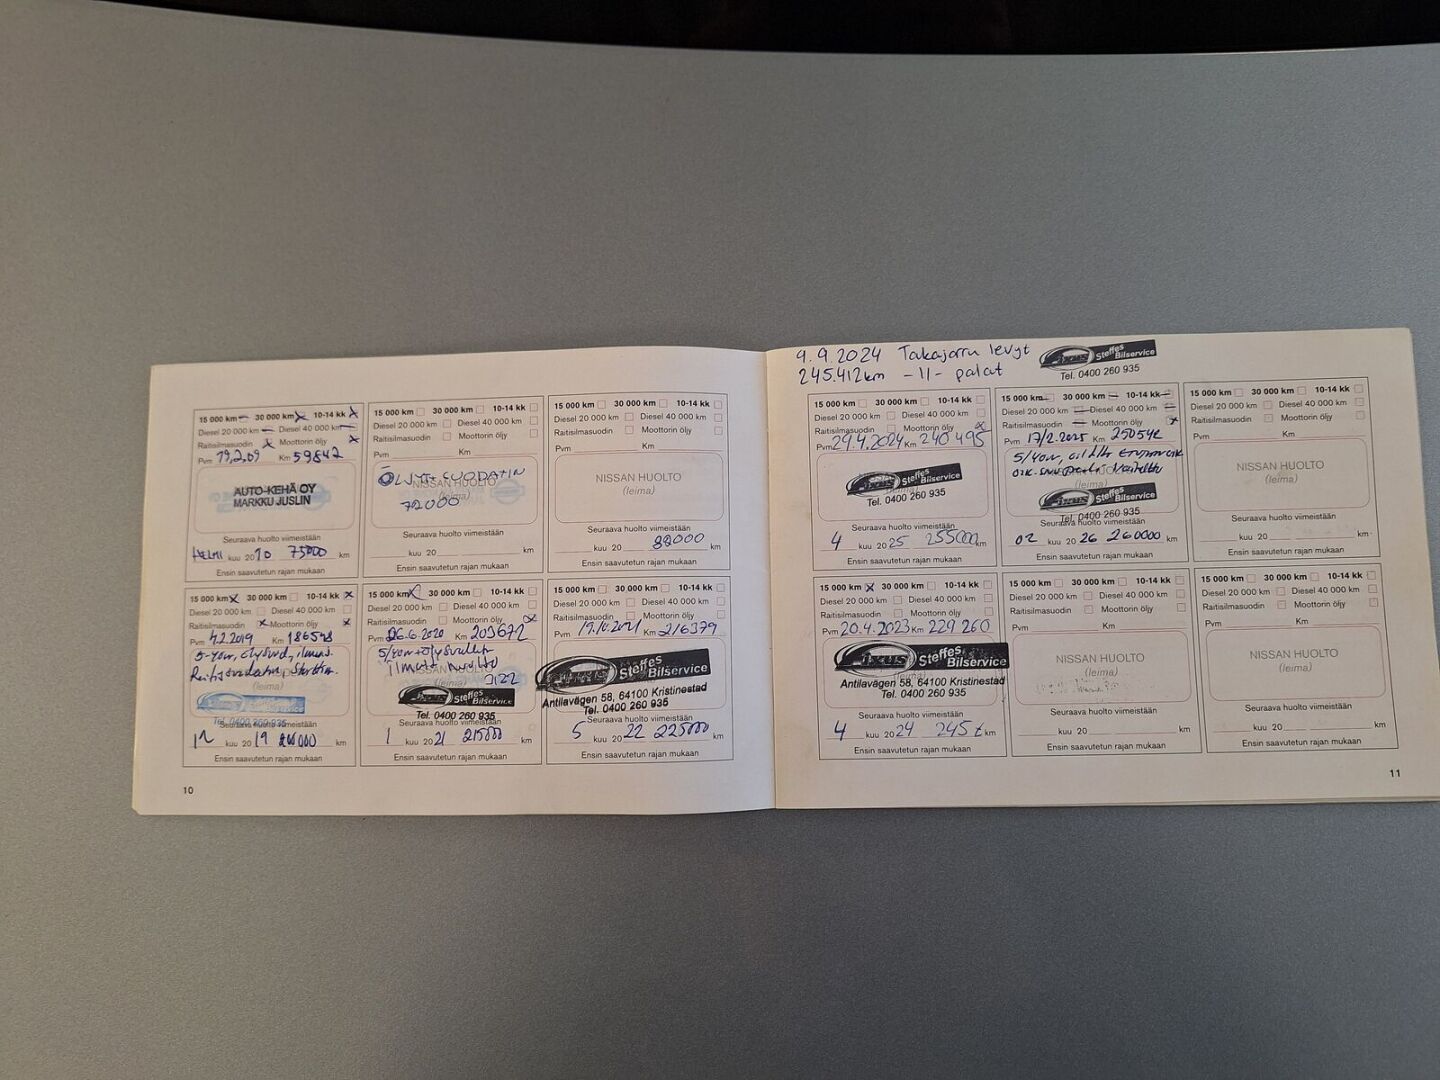 15 000 km 30 000 km 10-14 kk
Diesel 20 000 km Diesel 40 000 km
Raitisilmasuodin Moottorin öljy
Pvm 19.2.09 Km 59842
AUTO-KEHÄ OY
MARKKU JUSLIN
Seuraava huolto viimeistään
HELMI kuu 2010 75000 km
Ensin saavutetun rajan mukaan
15 000 km 30 000 km 10-14 kk
Diesel 20 000 km Diesel 40 000 km
Raitisilmasuodin Moottorin öljy
Pvm Km
ÖLJYT+SUODATIN
NISSAN HUOLTO
(leima)
72000
Seuraava huolto viimeistään
kuu 20 km
Ensin saavutetun rajan mukaan
15 000 km 30 000 km 10-14 kk
Diesel 20 000 km Diesel 40 000 km
Raitisilmasuodin Moottorin öljy
Pvm Km
NISSAN HUOLTO
(leima)
Seuraava huolto viimeistään
kuu 20 88000 km
Ensin saavutetun rajan mukaan
15 000 km 30 000 km 10-14 kk
Diesel 20 000 km Diesel 40 000 km
Raitisilmasuodin Moottorin öljy
Pvm 4.2.2019 Km 186578
(leima)
Tel. 0400 260 935
Seuraava huolto viimeistään
12 kuu 2019 km
Ensin saavutetun rajan mukaan
15 000 km 30 000 km 10-14 kk
Diesel 20 000 km Diesel 40 000 km
Raitisilmasuodin Moottorin öljy
Pvm 26.6.2020 Km 203672
huolto
(leima)
Steffes Bilservice
Tel. 0400 260 935
Seuraava huolto viimeistään
1 kuu 2021 215000 km
Ensin saavutetun rajan mukaan
15 000 km 30 000 km 10-14 kk
Diesel 20 000 km Diesel 40 000 km
Raitisilmasuodin Moottorin öljy
Pvm 19.10.2021 Km 216379
Fixus Steffes Bilservice
Antilavägen 58, 64100 Kristinestad
Tel. 0400 260 935
Seuraava huolto viimeistään
5 kuu 2022 225000 km
Ensin saavutetun rajan mukaan
10
9.9.2024 Takajarru levyt
245.412km -11- palat
Fixus Steffes Bilservice
Tel. 0400 260 935
15 000 km 30 000 km 10-14 kk
Diesel 20 000 km Diesel 40 000 km
Raitisilmasuodin Moottorin öljy
Pvm 29.4.2024 Km 240 495
Fixus Steffes Bilservice
Tel. 0400 260 935
Seuraava huolto viimeistään
4 kuu 2025 255000 km
Ensin saavutetun rajan mukaan
15 000 km 30 000 km 10-14 kk
Diesel 20 000 km Diesel 40 000 km
Raitisilmasuodin Moottorin öljy
Pvm 17/2.2025 Km 250542
(leima)
Fixus Steffes Bilservice
Tel. 0400 260 935
Seuraava huolto viimeistään
02 kuu 2026 260000 km
Ensin saavutetun rajan mukaan
15 000 km 30 000 km 10-14 kk
Diesel 20 000 km Diesel 40 000 km
Raitisilmasuodin Moottorin öljy
Pvm Km
NISSAN HUOLTO
(leima)
Seuraava huolto viimeistään
kuu 20 km
Ensin saavutetun rajan mukaan
15 000 km 30 000 km 10-14 kk
Diesel 20 000 km Diesel 40 000 km
Raitisilmasuodin Moottorin öljy
Pvm 20.4.2023 Km 229 260
Fixus Steffes Bilservice
(leima)
Antilavägen 58, 64100 Kristinestad
Tel. 0400 260 935
Seuraava huolto viimeistään
4 kuu 2024 245 t km
Ensin saavutetun rajan mukaan
15 000 km 30 000 km 10-14 kk
Diesel 20 000 km Diesel 40 000 km
Raitisilmasuodin Moottorin öljy
Pvm Km
NISSAN HUOLTO
(leima)
Seuraava huolto viimeistään
kuu 20 km
Ensin saavutetun rajan mukaan
15 000 km 30 000 km 10-14 kk
Diesel 20 000 km Diesel 40 000 km
Raitisilmasuodin Moottorin öljy
Pvm Km
NISSAN HUOLTO
(leima)
Seuraava huolto viimeistään
kuu 20 km
Ensin saavutetun rajan mukaan
11